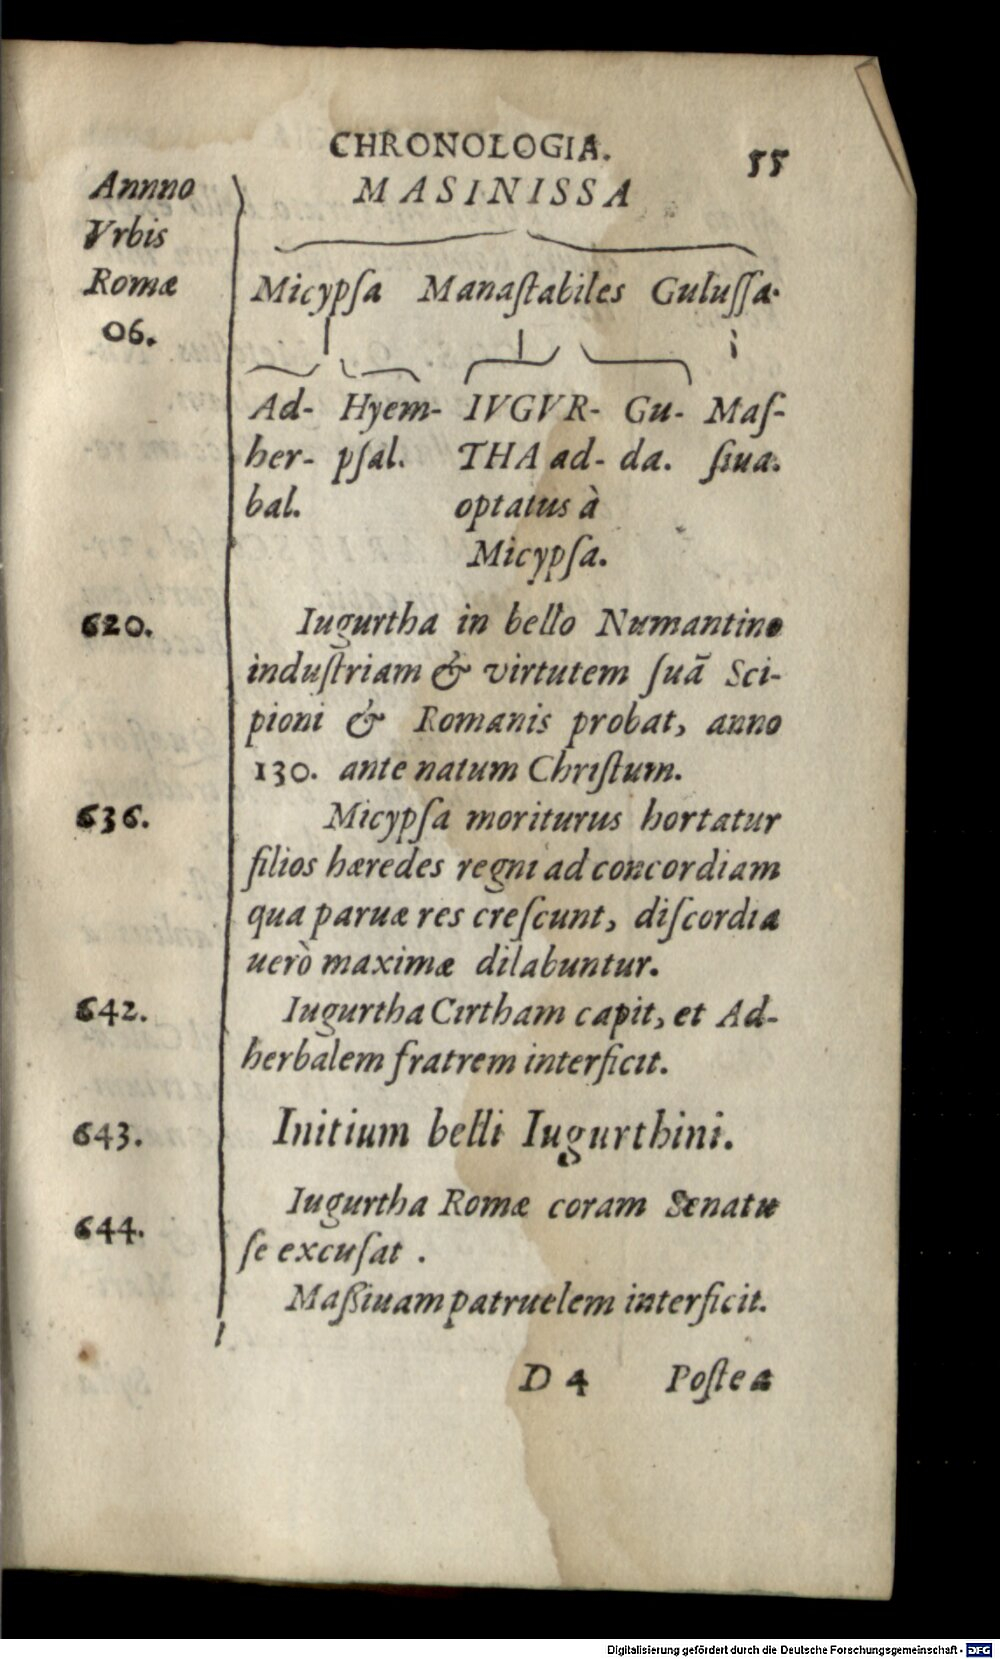 CHRONOLOGIA. 55
Annno
Vrbis
Romæ
06.
MASINISSA
Micypſa Manaſtabiles Guluſſa.
Ad- Hyem- IVGVR- Gu- Maſ-
her- pſal. THA ad- da. ſiua.
bal. optatus à
Micypſa.
620. Iugurtha in bello Numantino
induſtriam & virtutem ſuā Sci-
pioni & Romanis probat, anno
130. ante natum Chriſtum.
636. Micypſa moriturus hortatur
filios hæredes regni ad concordiam
qua paruæ res creſcunt, diſcordia
uerò maximæ dilabuntur.
642. Iugurtha Cirtham capit, et Ad-
herbalem fratrem interficit.
643. Initium belli Iugurthini.
Iugurtha Romæ coram Senatu
644. ſe excuſat .
Maßiuam patruelem interficit.
D 4 Poſtea
Digitalisierung gefördert durch die Deutsche Forschungsgemeinschaft - DFG